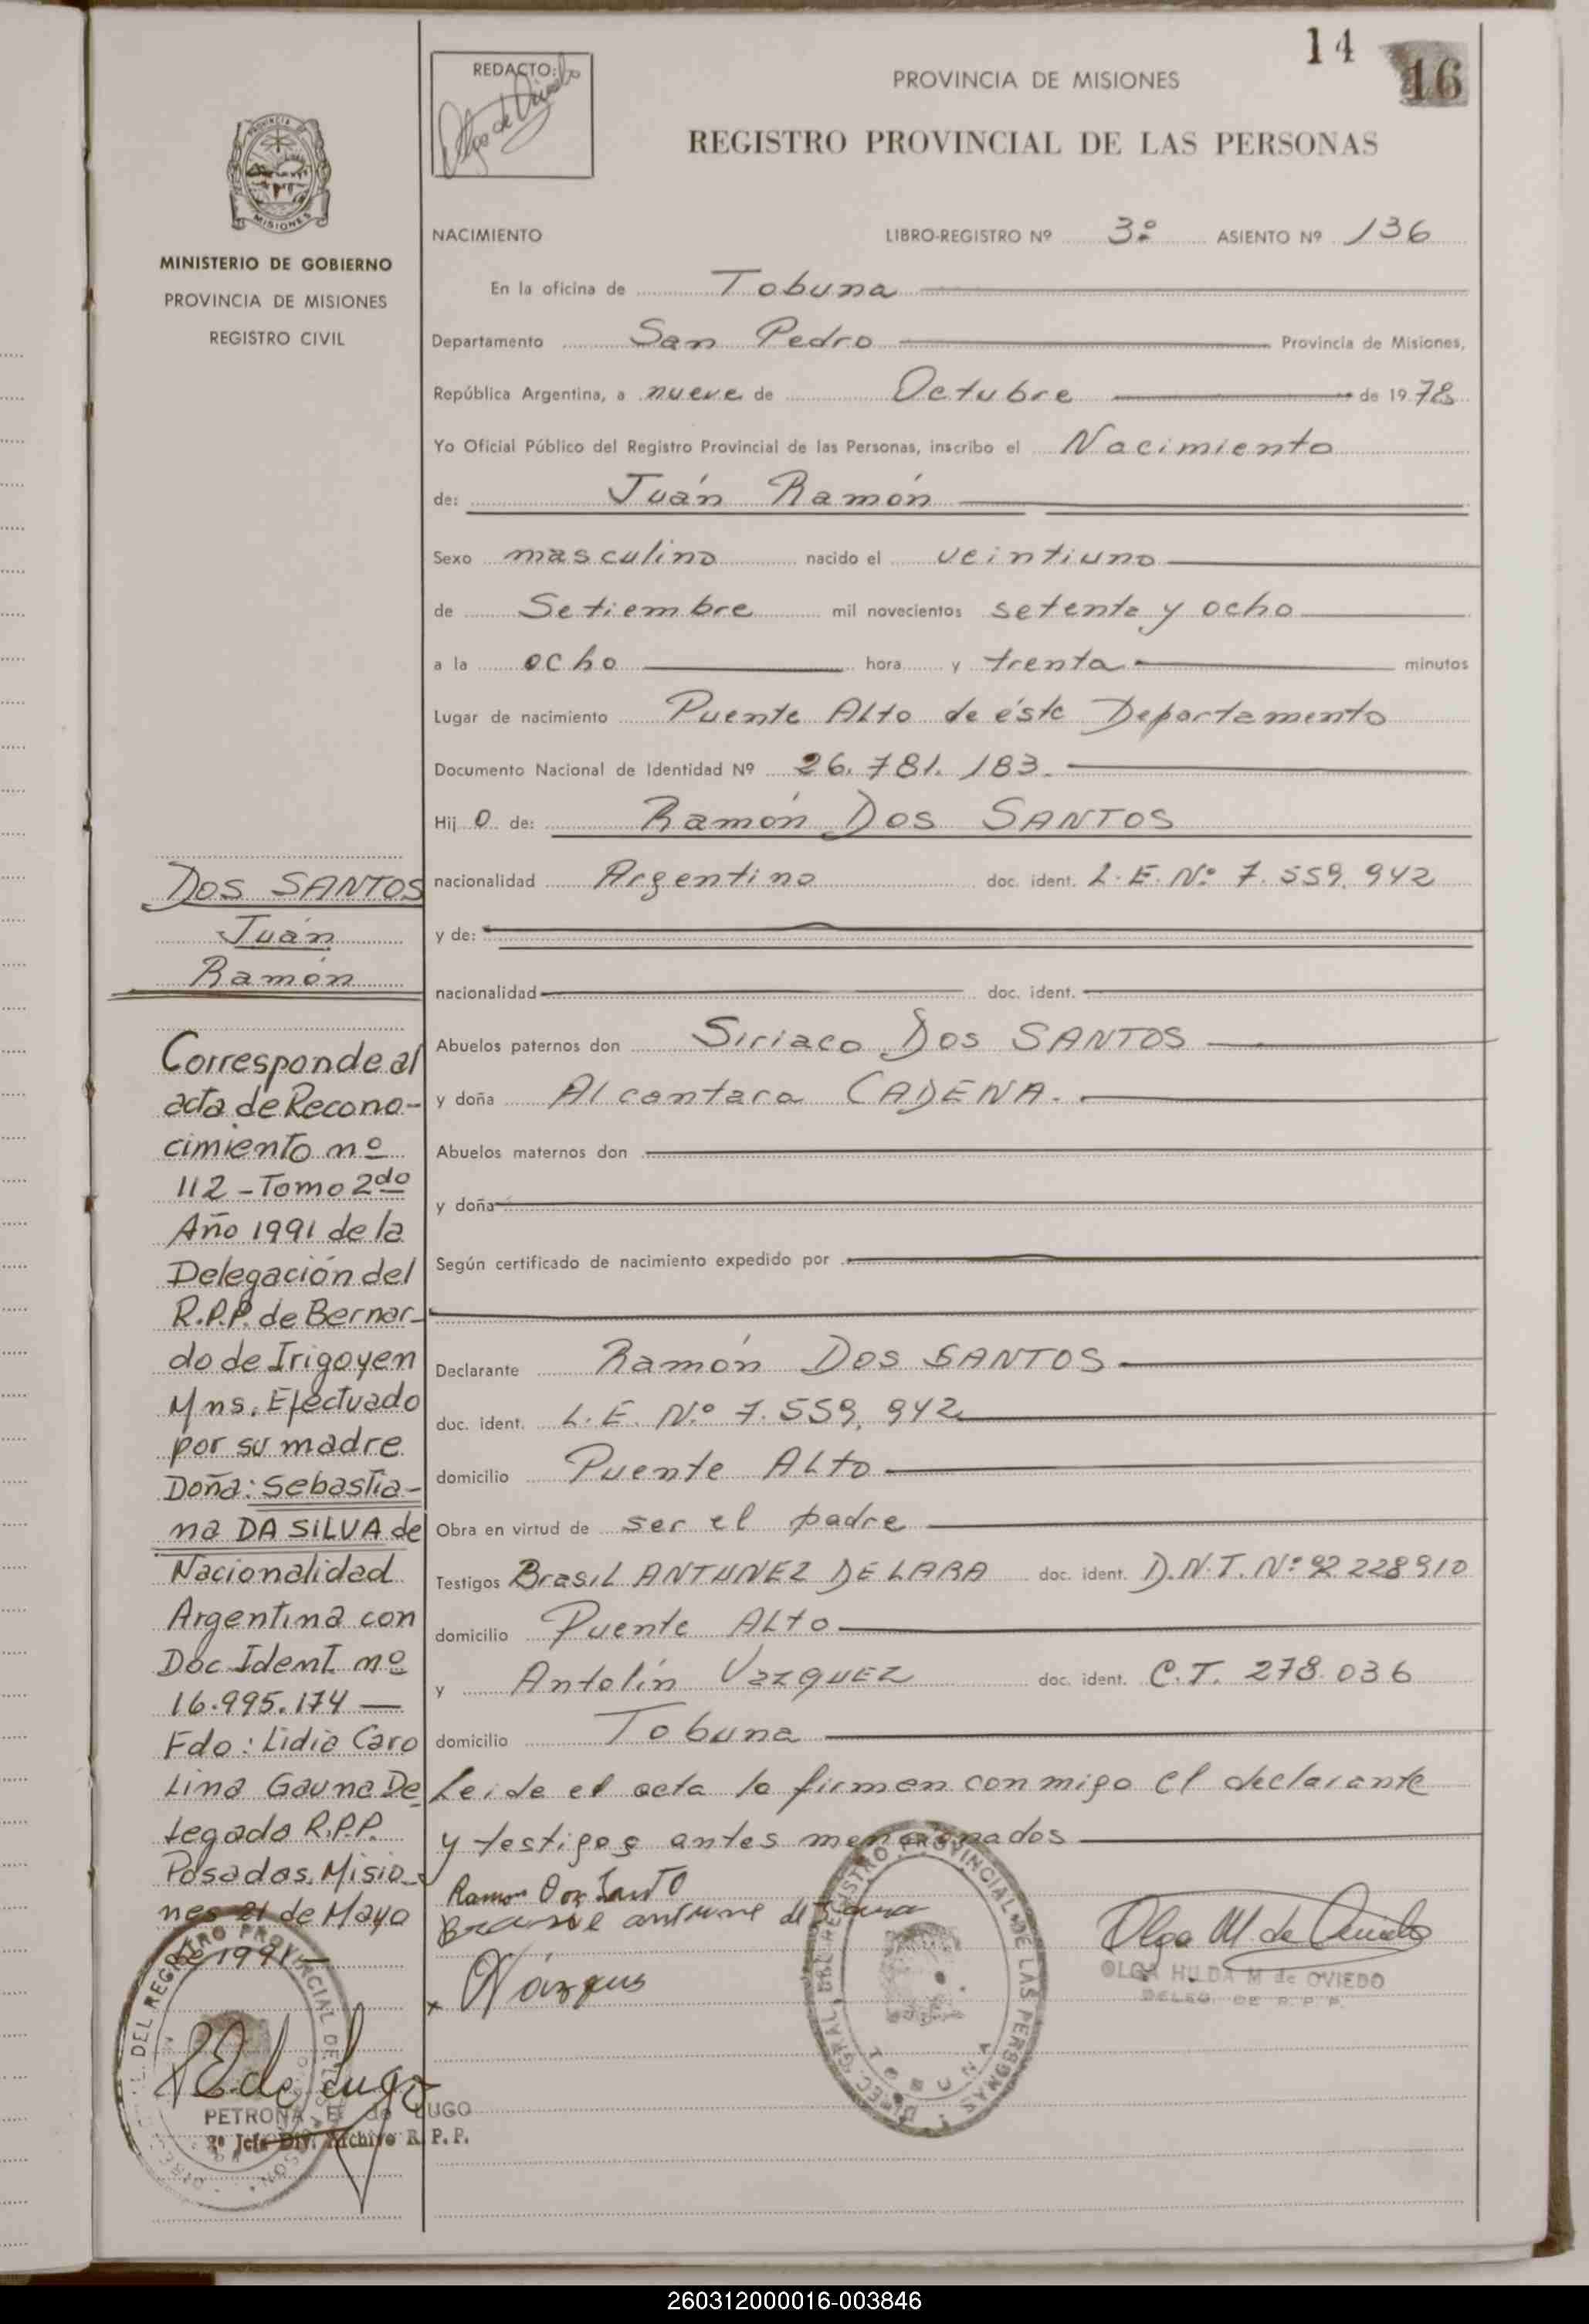 14
16
REDACTO:
PROVINCIA DE MISIONES
REGISTRO PROVINCIAL DE LAS PERSONAS
MISIONES
MINISTERIO DE GOBIERNO
PROVINCIA DE MISIONES
REGISTRO CIVIL
NACIMIENTO LIBRO-REGISTRO Nº 3º ASIENTO Nº 136
En la oficina de Tobuna
Departamento San Pedro Provincia de Misiones,
República Argentina, a nueve de Octubre de 1978
Yo Oficial Público del Registro Provincial de las Personas, inscribo el Nacimiento
de: Juán Ramón
Sexo masculino nacido el veintiuno
de Setiembre mil novecientos setenta y ocho
a la ocho hora y trenta minutos
Lugar de nacimiento Puente Alto de éste Departamento
Documento Nacional de Identidad Nº 26.781.183.
Hij o de: Ramón Dos SANTOS
nacionalidad Argentino doc. ident. L.E. Nº 7.559.942
y de:
nacionalidad doc. ident.
Abuelos paternos don Siriaco Dos SANTOS
y doña Alcantara CADENA.
Abuelos maternos don
y doña
Según certificado de nacimiento expedido por
Declarante Ramón Dos SANTOS
doc. ident. L.E. Nº 7.559.942
domicilio Puente Alto
Obra en virtud de ser el padre
Testigos Brasil ANTUNEZ DE LARA doc. ident. D.N.I. Nº 92 228910
domicilio Puente Alto
y Antolín VazquEz doc. ident. C.I. 278.036
domicilio Tobuna
Leide el acta lo firmen conmigo el declarante
y testigos antes mencionados
Ramon Dos Santo
Olga M de Oviedo
OLGA HILDA M de OVIEDO
DELEG. DE R. P. P.
DIREC. GRAL. DEL REGISTRO PROVINCIAL DE LAS PERSONAS
TOBUNA
DOS SANTOS
Juán
Ramón
Corresponde al
acta de Recono-
cimiento nº
112 - Tomo 2do
Año 1991 de la
Delegación del
R.P.P. de Bernar-
do de Irigoyen
Mns. Efectuado
por su madre
Doña: Sebastia-
na DA SILVA de
Nacionalidad
Argentina con
Doc Ident. nº
16.995.174
Fdo: Lidia Caro
Lina Gauna De-
legado R.P.P.
Posadas, Misio-
nes 21 de Mayo
de 1991
PETRONA E. de LUGO
2º Jefe Div. Archivo R. P. P.
260312000016-003846